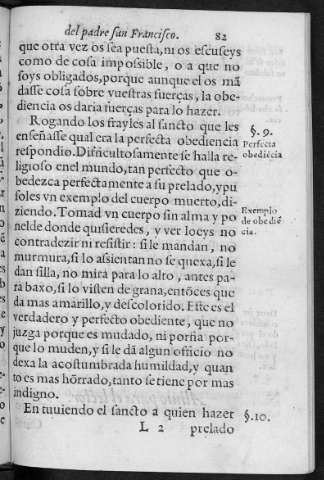 del padre san Francisco. 82
que otra vez os sea puesta, ni os escuseys
como de cosa impossible, o a que no
soys obligados, porque aunque el os mã
dasse cosa sobre vuestras fuerças, la obe-
diencia os daria fuerças para lo hazer.
Rogando los frayles al sancto que les
enseñasse qual era la perfecta obediencia
respondio. Difficultosamente se halla re-
ligioso en el mundo, tan perfecto que o-
bedezca perfectamente a su prelado, y pu
soles vn exemplo del cuerpo muerto, di-
ziendo. Tomad vn cuerpo sin alma y po
nelde donde quisieredes, y ver loeys no
contradezir ni resistir: si le mandan, no
murmura, si lo assientan no se quexa, si le
dan silla, no mira para lo alto, antes pa-
ra baxo, si lo visten de grana, entõces que
da mas amarillo, y descolorido. Este es el
verdadero y perfecto obediente, que no
juzga porque es mudado, ni porfia por-
que lo muden, y si le dã algun officio no
dexa la acostumbrada humildad, y quan
to es mas hõrrado, tanto se tiene por mas
indigno.
En tuuiendo el sancto a quien hazer
L 2 prelado
§. 9.
Perfecta
obediẽcia
Exemplo
de obediẽ
cia.
§. 10.